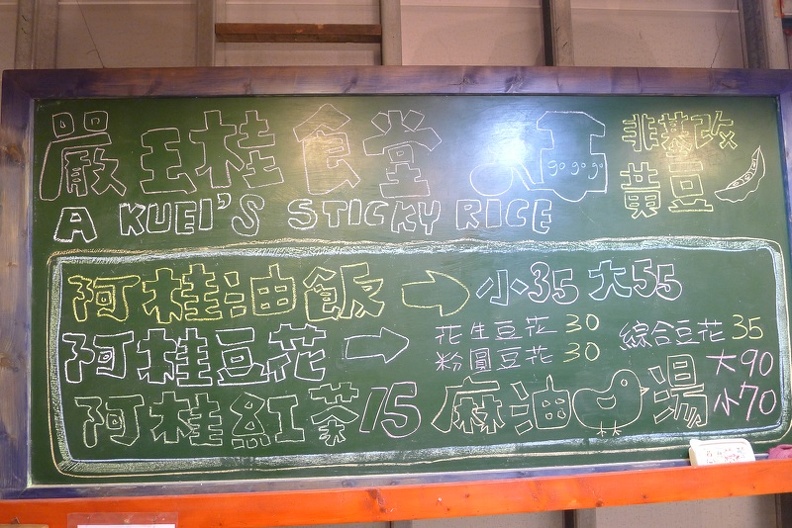 嚴玉桂食堂
gogogo
非基改
黃豆
A KUEI'S STICKY RICE
阿桂油飯 小35 大55
阿桂豆花 花生豆花30 綜合豆花35
粉圓豆花30
阿桂紅茶15 麻油湯 大90
小70